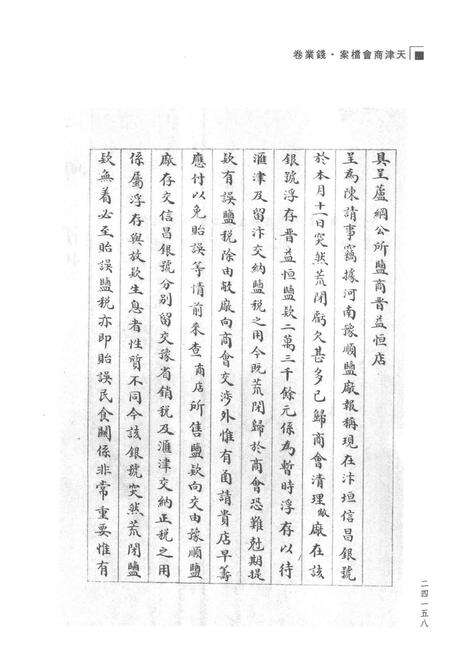 天津商會檔案·錢業卷
具呈蘆綱公所鹽商晋益恒店
呈為陳請事竊據河南豫順鹽廠報稱現在汴垣信昌銀號
於本月十一日突然荒閉虧欠甚多已歸商會清理敝廠在該
銀號浮存晋益恒鹽欵二萬三千餘元係為暫時浮存以待
滙津及留汴交納鹽稅之用今既荒閉歸於商會恐難尅期提
欵有誤鹽稅除由敝廠向商會交涉外惟有函請貴店早籌
應付以免貽誤等情前來查商店所售鹽欵向交由豫順鹽
廠存交信昌銀號分別留交豫省銷稅及滙津交納正稅之用
係屬浮存與放欵生息者性質不同今該銀號突然荒閉鹽
欵無着必至貽誤鹽稅亦即貽誤民食關係非常重要惟有
二四一五八